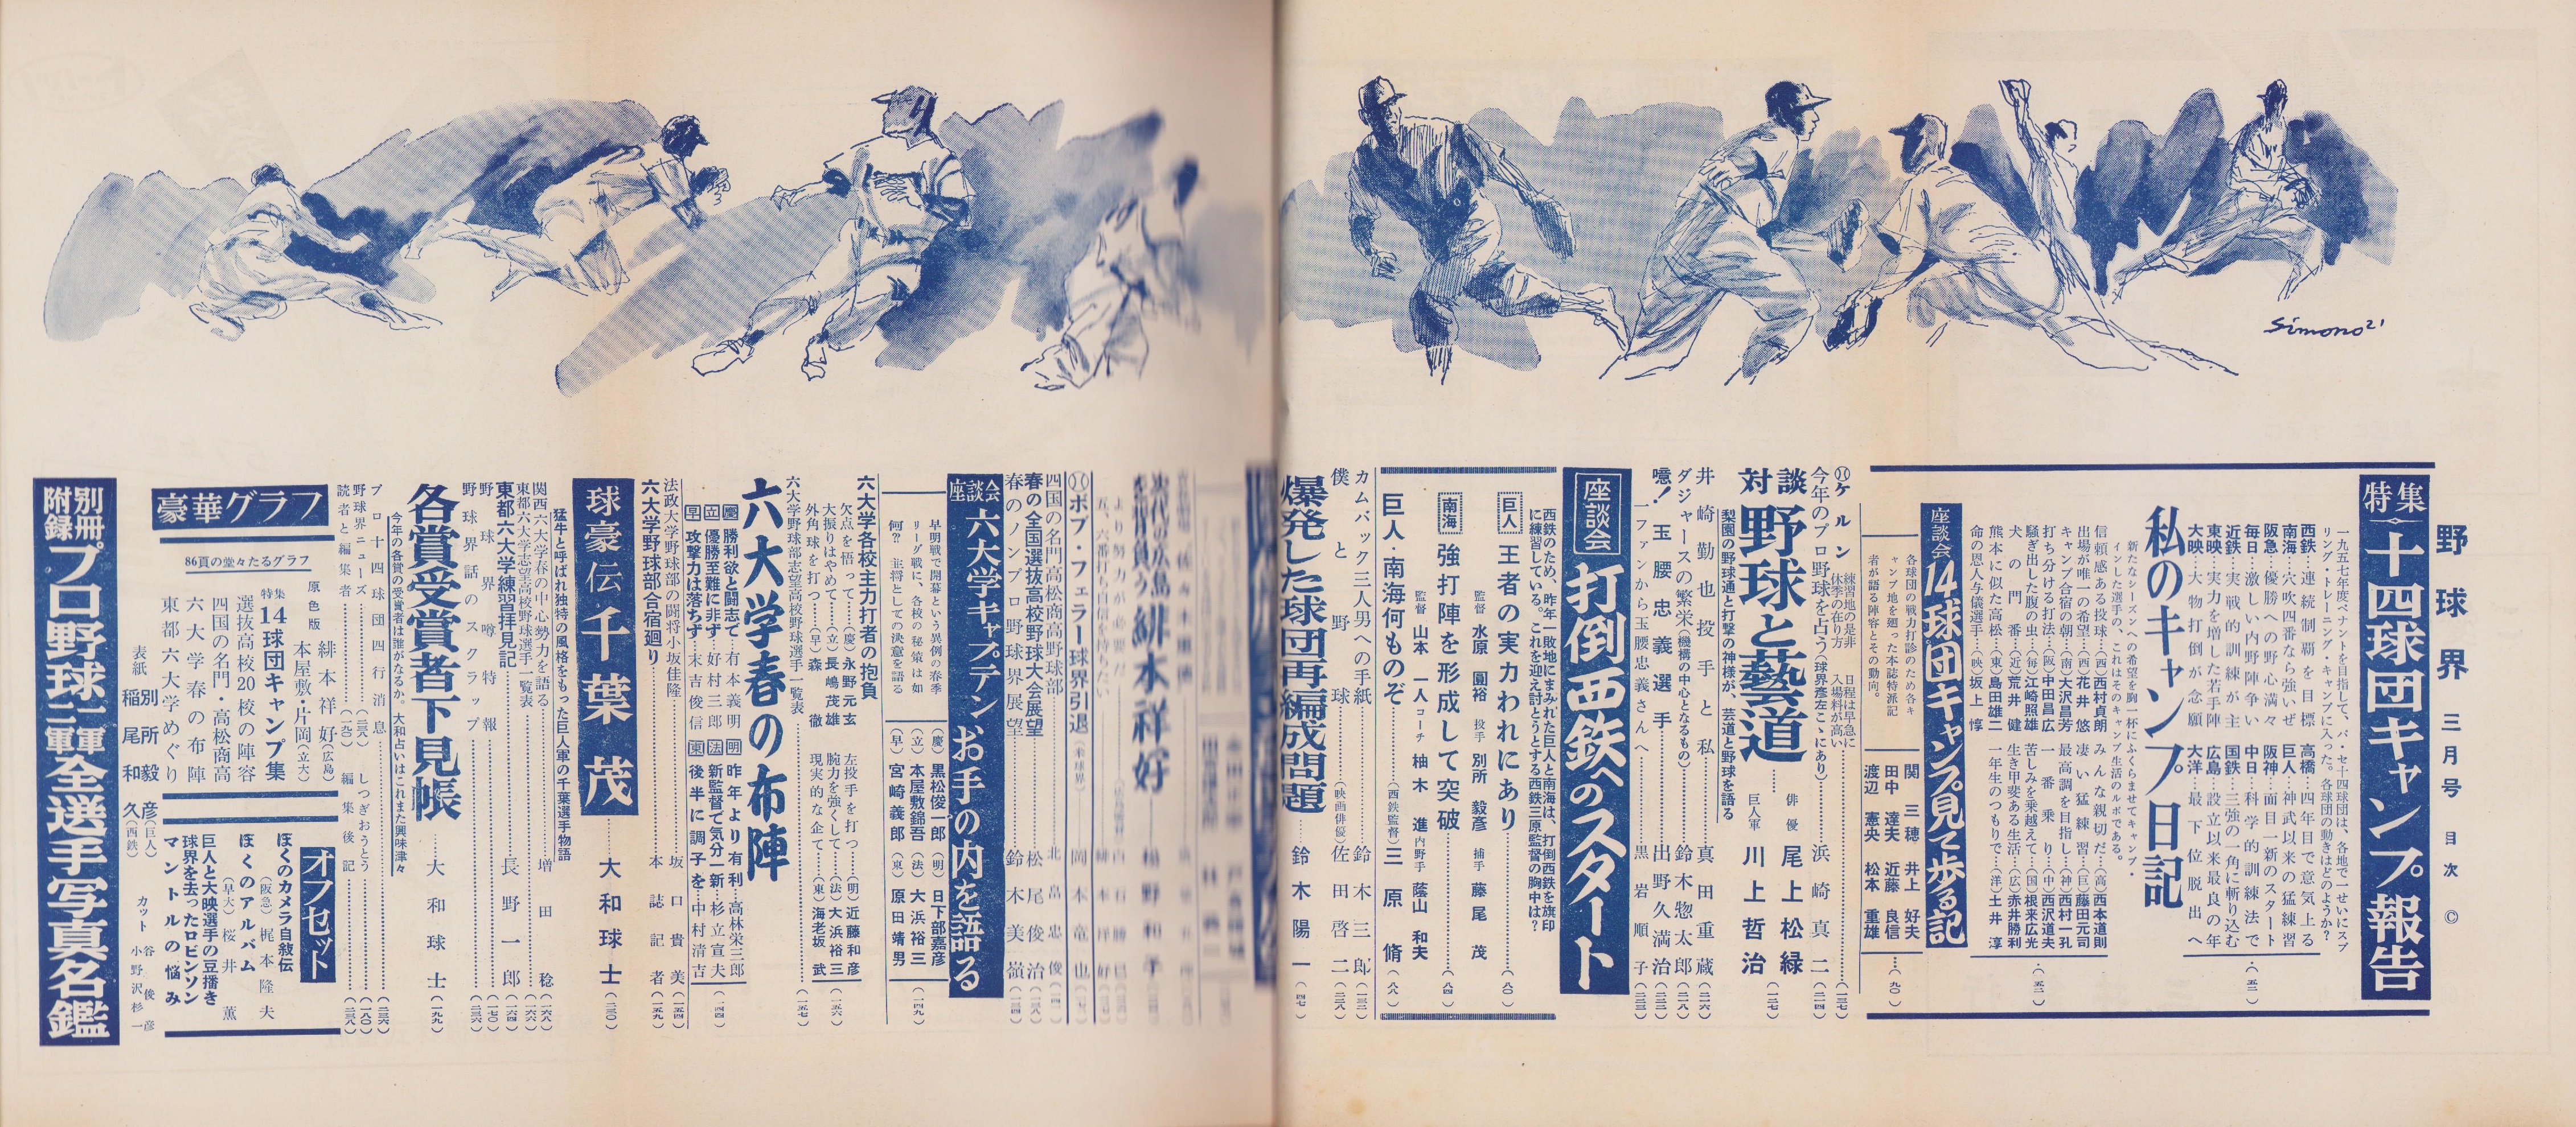 野球界 三月号 目次 ©
特集 十四球団キャンプ報告
一九五七年度ペナントを目指して、パ・セ十四球団は、各地で一せいにスプ
リング・トレーニング・キャンプに入った。各球団の動きはどのようか?
西鉄…連続制覇を目標
高橋…四年目で意気上る
南海…穴吹四番なら強いぜ
巨人…神武以来の猛練習
阪急…優勝への野心満々
阪神…面目一新のスタート
毎日…激しい内野陣争い
中日…科学的訓練法で
近鉄…実戦的訓練が主
国鉄…三強の一角に斬り込む
東映…実力を増した若手陣
広島…設立以来最良の年
大映…大物打倒が念願
大洋…最下位脱出へ
(五二)
私のキャンプ日記
新たなシーズンへの希望を胸一杯にふくらませてキャンプ・
インした選手の、これはそのキャンプ生活のルポである。
信頼感ある投球…(西)西村貞朗
みんな親切だ…(高)西本道則
出場が唯一の希望…(西)花井悠
凄い猛練習…(巨)藤田元司
キャンプ合宿の朝…(南)大沢昌芳
最高調を目指し…(神)西村一孔
打ち分ける打法…(阪)中田昌広
一番乗り…(中)西沢道夫
騒ぎ出した腹の虫…(毎)江崎照雄
苦しみを乗越えて…(国)根来広光
犬の門番…(近)荒井健
生き甲斐ある生活…(広)赤井勝利
熊本に似た高松…(東)島田雄二
一年生のつもりで…(洋)土井淳
命の恩人与儀選手…(映)坂上惇
(五二)
座談会 14球団キャンプ見て歩る記
各球団の戦力打診のため各キ
ャンプ地を廻った本誌特派記
者が語る陣容とその動向。
関三穂 井上好夫
田中達夫 近藤良信
渡辺憲央 松本重雄
(九〇)
ケルン 練習地の是非 日程は早急に
休季の在り方 入場料が高い
(一三七)
今年のプロ野球を占う(球界彦左こゝにあり)…浜崎真二(二一四)
対談 野球と藝道
俳優 尾上松緑
巨人軍 川上哲治
(一二七)
梨園の野球通と打撃の神様が、芸道と野球を語る
井崎勤也投手と私…真田重蔵(二一六)
ダジャースの繁栄(機構の中心となるもの)…鈴木惣太郎(二一八)
噫!玉腰忠義選手…出野久満治(二三二)
一ファンから玉腰忠義さんへ…黒岩順子(二三三)
座談会 打倒西鉄へのスタート
西鉄のため、昨年一敗地にまみれた巨人と南海は、打倒西鉄を旗印
に練習している。これを迎え討とうとする西鉄三原監督の胸中は?
巨人 王者の実力われにあり…(八〇)
監督 水原圓裕 投手 別所毅彦 捕手 藤尾茂
南海 強打陣を形成して突破…(八四)
監督 山本一人 コーチ 柚木進 内野手 蔭山和夫
巨人・南海何ものぞ…(西鉄監督)三原脩(八八)
カムバック三人男への手紙…鈴木三郎(一三二)
僕と野球…(映画俳優)佐田啓二(二二八)
爆発した球団再編成問題…鈴木陽一(四七)
緋本祥好
ボブ・フェラー球界引退…岡本竜也
四国の名門高松商高野球部…北畠忠俊
春の全国選抜高校野球大会展望…松尾俊治(一三八)
春のノンプロ野球界展望…鈴木美嶺(一三四)
座談会 六大学キャプテンお手の内を語る
早明戦で開幕という異例の春季
リーグ戦に、各校の秘策は如
何? 主将としての決意を語る
(慶)黒松俊一郎 (明)日下部嘉彦
(立)本屋敷錦吾 (法)大浜裕三
(早)宮崎義郎 (東)原田靖男
(一四九)
六大学各校主力打者の抱負
欠点を悟って…(慶)永野元玄
左投手を打つ…(明)近藤和彦
大振りはやめて…(立)長嶋茂雄
腕力を強くして…(法)大浜裕三
外角球を打つ…(早)森徹
現実的な企て…(東)海老坂武
(一五六)
六大学野球部志望高校野球選手一覧表…(一五七)
六大学春の布陣
慶 勝利欲と闘志で…有本義明
明 昨年より有利…高林栄三郎
立 優勝至難に非ず…好村三郎
法 新監督で気分一新…杉立宣夫
早 攻撃力は落ちず…末吉俊信
東 後半に調子を…中村清吉
(一四四)
法政大学野球部の闘将小坂佳隆…坂口貴美(一五四)
六大学野球部合宿廻り…本誌記者(一五九)
球豪伝 千葉茂 …大和球士(二三〇)
猛牛と呼ばれ独特の風格をもった巨人軍の千葉選手物語
関西六大学春の中心勢力を語る…増田稔(一六八)
東都六大学志望高校野球選手一覧表…(一六六)
東都六大学練習拝見記…長野一郎(一六四)
野球界噂特報…(一七〇)
野球界話のスクラップ…(二三六)
各賞受賞者下見帳…大和球士(一九九)
今年の各賞の受賞者は誰がなるか。大和占いはこれまた興味津々
プロ十四球団四行消息…(二三六)
野球界ニューズ…(二三八) しつぎおうとう…(一八〇)
読者と編集者…(一九二) 編集後記…(二三八)
豪華グラフ
86頁の堂々たるグラフ
原色版 緋本祥好(広島)
本屋敷・片岡(立大)
特集 14球団キャンプ集
選抜高校20校の陣容
四国の名門・高松商高
六大学春の布陣
東都六大学めぐり
オフセット
ぼくのカメラ自叙伝
(阪急)梶本隆夫
ぼくのアルバム
(早大)桜井薫
巨人と大映選手の豆播き
球界を去ったロビンソン
マントルの悩み
表紙 別所毅彦(巨人)
稲尾和久(西鉄)
カット 谷俊彦
小野沢杉一
別冊附録 プロ野球二軍全選手写真名鑑
Simono 21